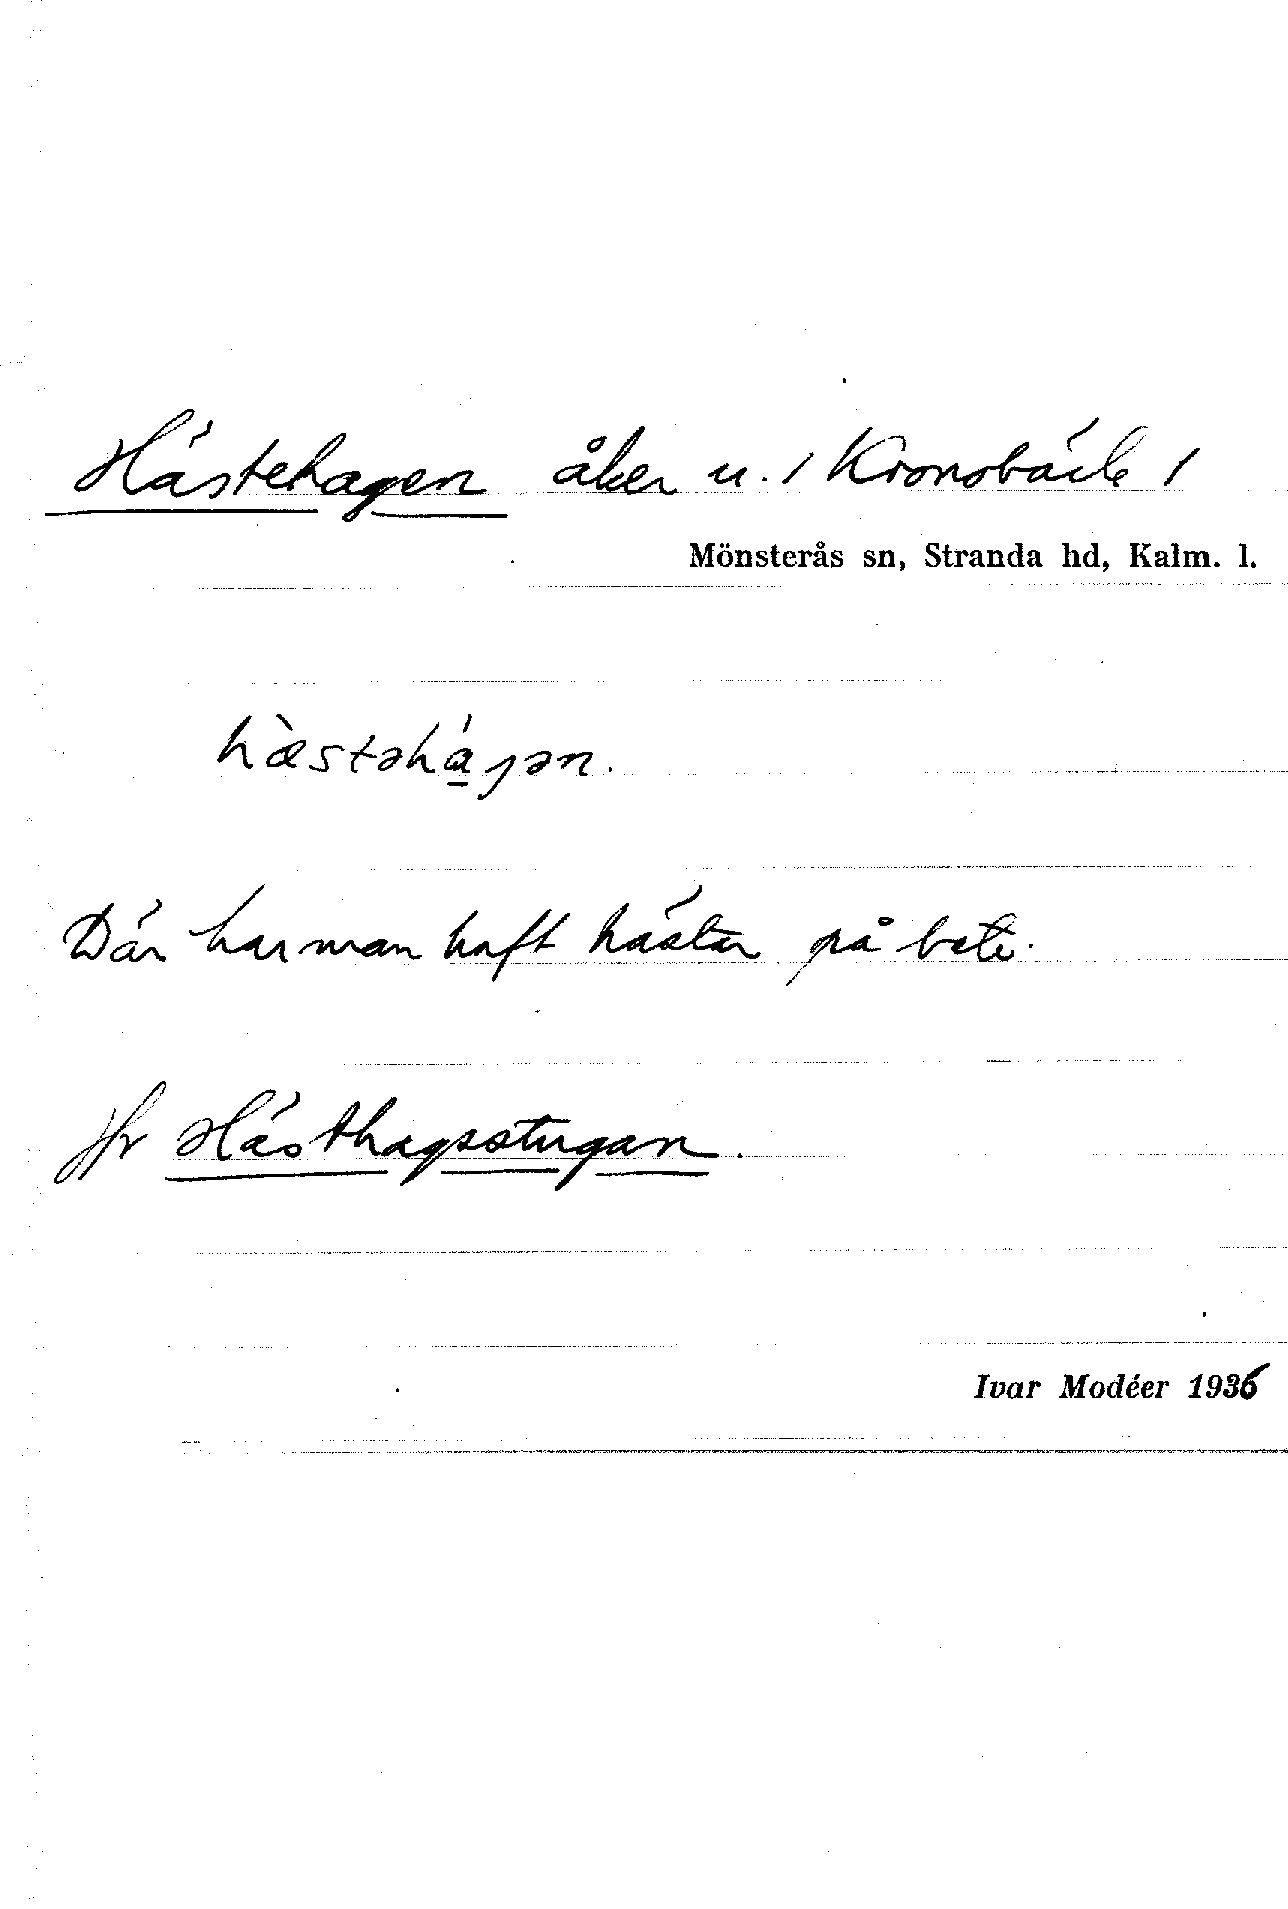 Hästehagen åker u. / Kronobäck /
Mönsterås sn, Stranda hd, Kalm. l.
hæ̀stəhá̱gən.
Där har man haft hästar på bete.
Jfr Hästhagsstugan.
Ivar Modéer 1936